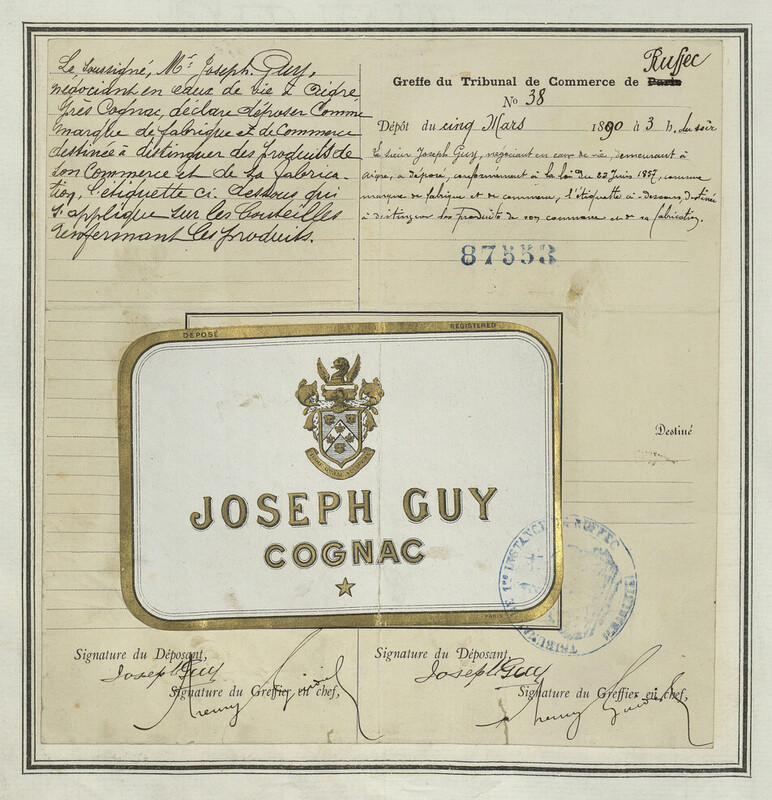 Le soussigné, Mr. Joseph Guy,
négociant en eaux de vie à Aigre
près Cognac, déclare déposer comme
marque de fabrique et de Commerce
destinée à distinguer des produits de
son Commerce et de sa fabrica-
tion, l'étiquette ci-dessous qui
s'applique sur les bouteilles
renfermant les produits.
Ruffec
Greffe du Tribunal de Commerce de Paris
No 38
Dépôt du cinq Mars 1890 à 3 h. du soir
Le sieur Joseph Guy, négociant en eaux de vie, demeurant à
Aigre, a déposé, conformément à la loi du 23 Juin 1857, comme
marque de fabrique et de commerce, l'étiquette ci-dessous, destinée
à distinguer les produits de son commerce et de sa fabrication.
87553
DÉPOSÉ
REGISTERED
JOSEPH GUY
COGNAC
PARIS
Destiné
TRIBUNAL DE 1re INSTANCE DE RUFFEC
Signature du Déposant,
Joseph Guy
Signature du Greffier en chef,
Signature du Déposant,
Joseph Guy
Signature du Greffier en chef,